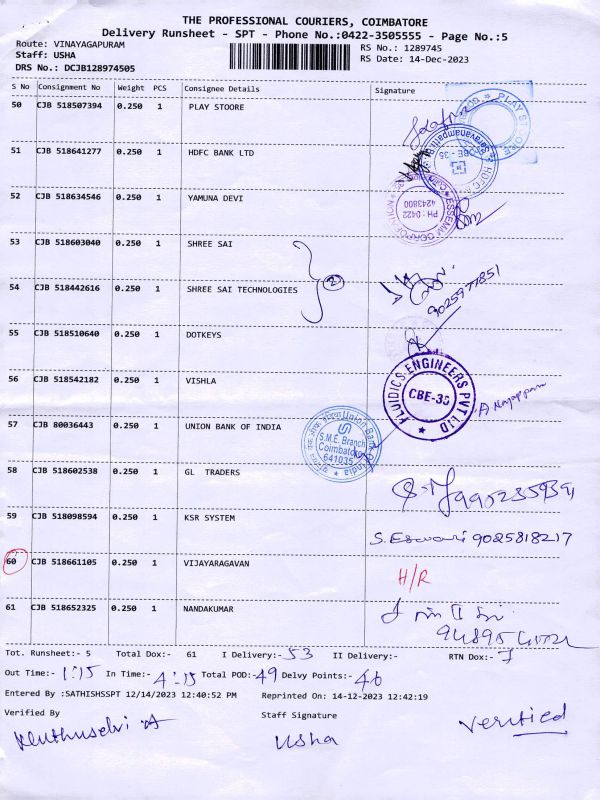 THE PROFESSIONAL COURIERS, COIMBATORE
Delivery Runsheet - SPT - Phone No.:0422-3505555 - Page No.:5
Route: VINAYAGAPURAM
Staff: USHA
DRS No.: DCJB128974505
RS No.: 1289745
RS Date: 14-Dec-2023
S No Consignment No Weight PCS Consignee Details Signature
50 CJB 518507394 0.250 1 PLAY STOORE
PLAY STOORE
51 CJB 518641277 0.250 1 HDFC BANK LTD
CBE - 35
52 CJB 518634546 0.250 1 YAMUNA DEVI
PH : 0422
4243800
53 CJB 518603040 0.250 1 SHREE SAI
54 CJB 518442616 0.250 1 SHREE SAI TECHNOLOGIES
2
9025977851
55 CJB 518510640 0.250 1 DOTKEYS
56 CJB 518542182 0.250 1 VISHLA
FLUIDICS ENGINEERS PVT LTD
CBE-35
57 CJB 80036443 0.250 1 UNION BANK OF INDIA
Union Bank of India
S.M.E. Branch
Coimbatore
641035
58 CJB 518602538 0.250 1 GL TRADERS
59 CJB 518098594 0.250 1 KSR SYSTEM
S. Eswari 9025818217
60 CJB 518661105 0.250 1 VIJAYARAGAVAN
H/R
61 CJB 518652325 0.250 1 NANDAKUMAR
Tot. Runsheet:- 5 Total Dox:- 61 I Delivery:- 53 II Delivery:- RTN Dox:- 7
Out Time:- 1:15 In Time:- 4:15 Total POD:- 49 Delvy Points:- 46
Entered By :SATHISHSSPT 12/14/2023 12:40:52 PM Reprinted On: 14-12-2023 12:42:19
Verified By Staff Signature
Usha
Verified